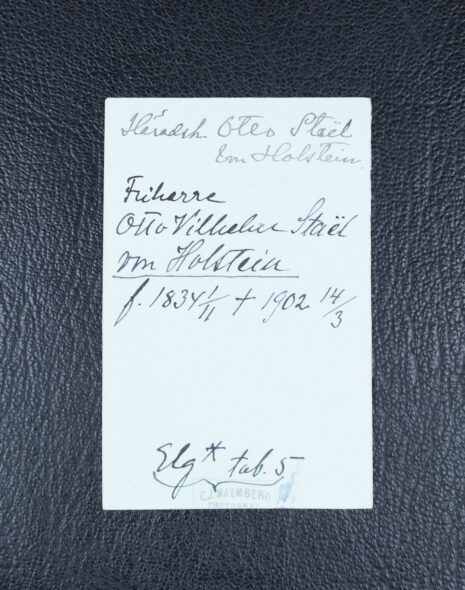 Häradsh. Otto Staël
von Holstein
Friherre
Otto Vilhelm Staël
von Holstein
f. 1834 1/11 + 1902 14/3
Elg* tab. 5
C.J. MALMBERG